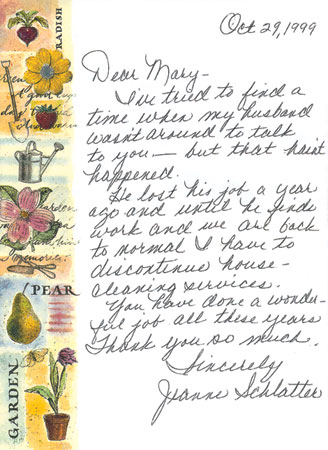 Oct 29, 1999
Dear Mary-
I've tried to find a
time when my husband
wasn't around to talk
to you — but that hasn't
happened.
He lost his job a year
ago and until he finds
work and we are back
to normal I have to
discontinue house-
cleaning services.
You have done a wonder-
ful job all these years
Thank you so much.
Sincerely
Jeanne Schlatter
RADISH
garden
memories.
PEAR
GARDEN